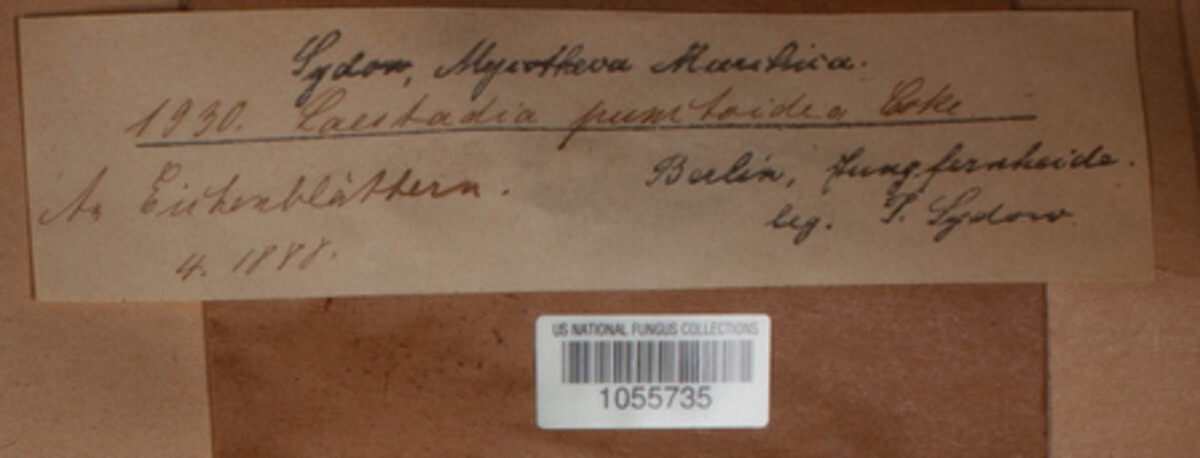 Sydow, Mycotheca Marchica.
1930. Laestadia punctoidea Coke
An Eichenblättern.
Berlin, Jungfernheide.
leg. P. Sydow
4. 1888.
US NATIONAL FUNGUS COLLECTIONS
1055735